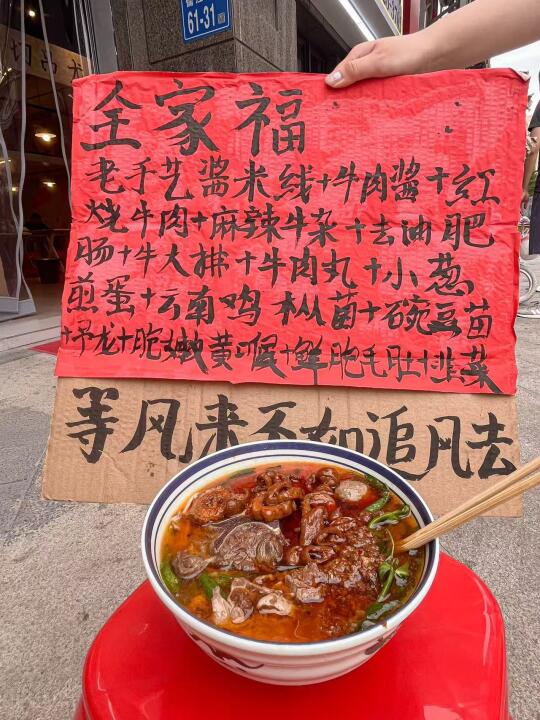 61-31
全家福
老手艺酱米线+牛肉酱+红
烧牛肉+麻辣牛杂+去油肥
肠+牛大排+牛肉丸+小葱
煎蛋+云南鸡枞菌+碗豆苗
+早龙+脆嫩黄喉+鲜脆毛肚+韭菜
等风来不如追风去